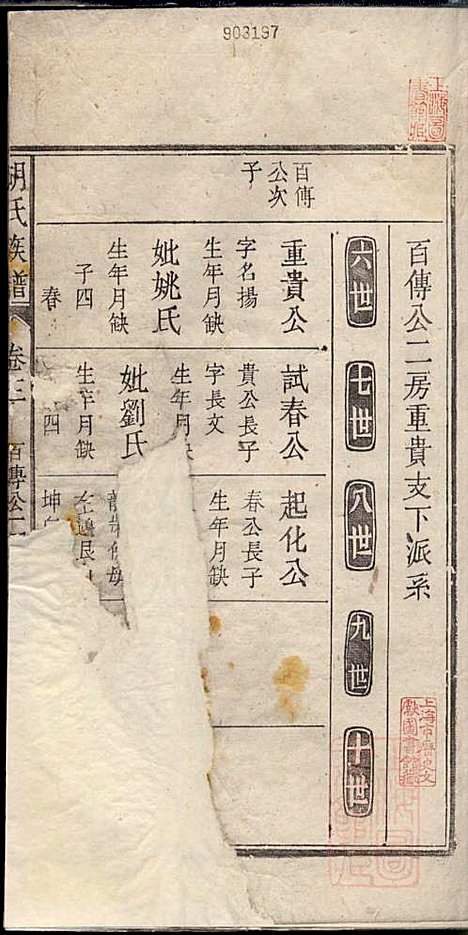 903197
百傳公二房重貴支下派系
六世
七世
八世
九世
十世
百傳
公次
子
重貴公
字名揚
生年月缺
妣姚氏
生年月缺
子四
春
試春公
貴公長子
字長文
生年月缺
妣劉氏
生年月缺
四
起化公
春公長子
生年月缺
坤
胡氏族譜
卷三
百傳公二
上海市歷史文
獻圖書館藏